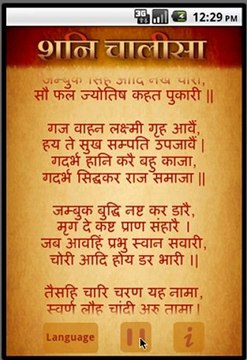 12:29 PM
शनि चालीसा
जम्बुक सिंह आदि नख धारी,
सौ फल ज्योतिष कहत पुकारी ||
गज वाहन लक्ष्मी गृह आवैं,
हय ते सुख सम्पति उपजावैं |
गदर्भ हानि करै बहु काजा,
गदर्भ सिद्धकर राज समाजा ||
जम्बुक बुद्धि नष्ट कर डारै,
मृग दे कष्ट प्राण संहारै |
जब आवहिं प्रभु स्वान सवारी,
चोरी आदि होय डर भारी ||
तैसहि चारि चरण यह नामा,
स्वर्ण लौह चांदी अरु तामा |
Language
i